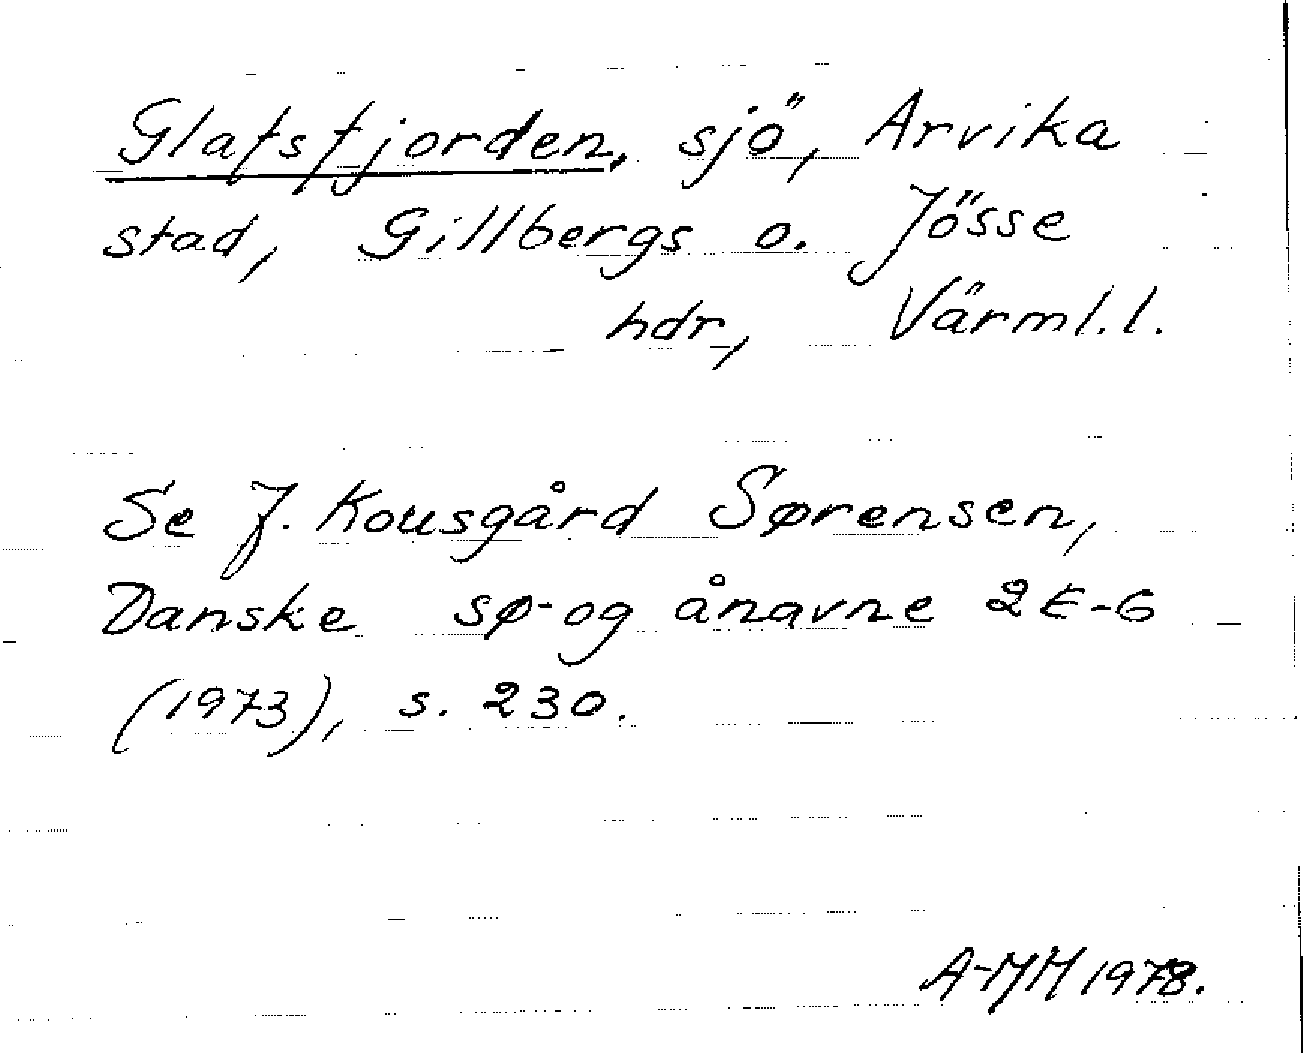 Glafsfjorden, sjö, Arvika
stad, Gillbergs o. Jösse
hdr, Värml.l.
Se J. Kousgård Sørensen,
Danske sø- og ånavne 2 E-G
(1973), s. 230.
A-MM 1978.